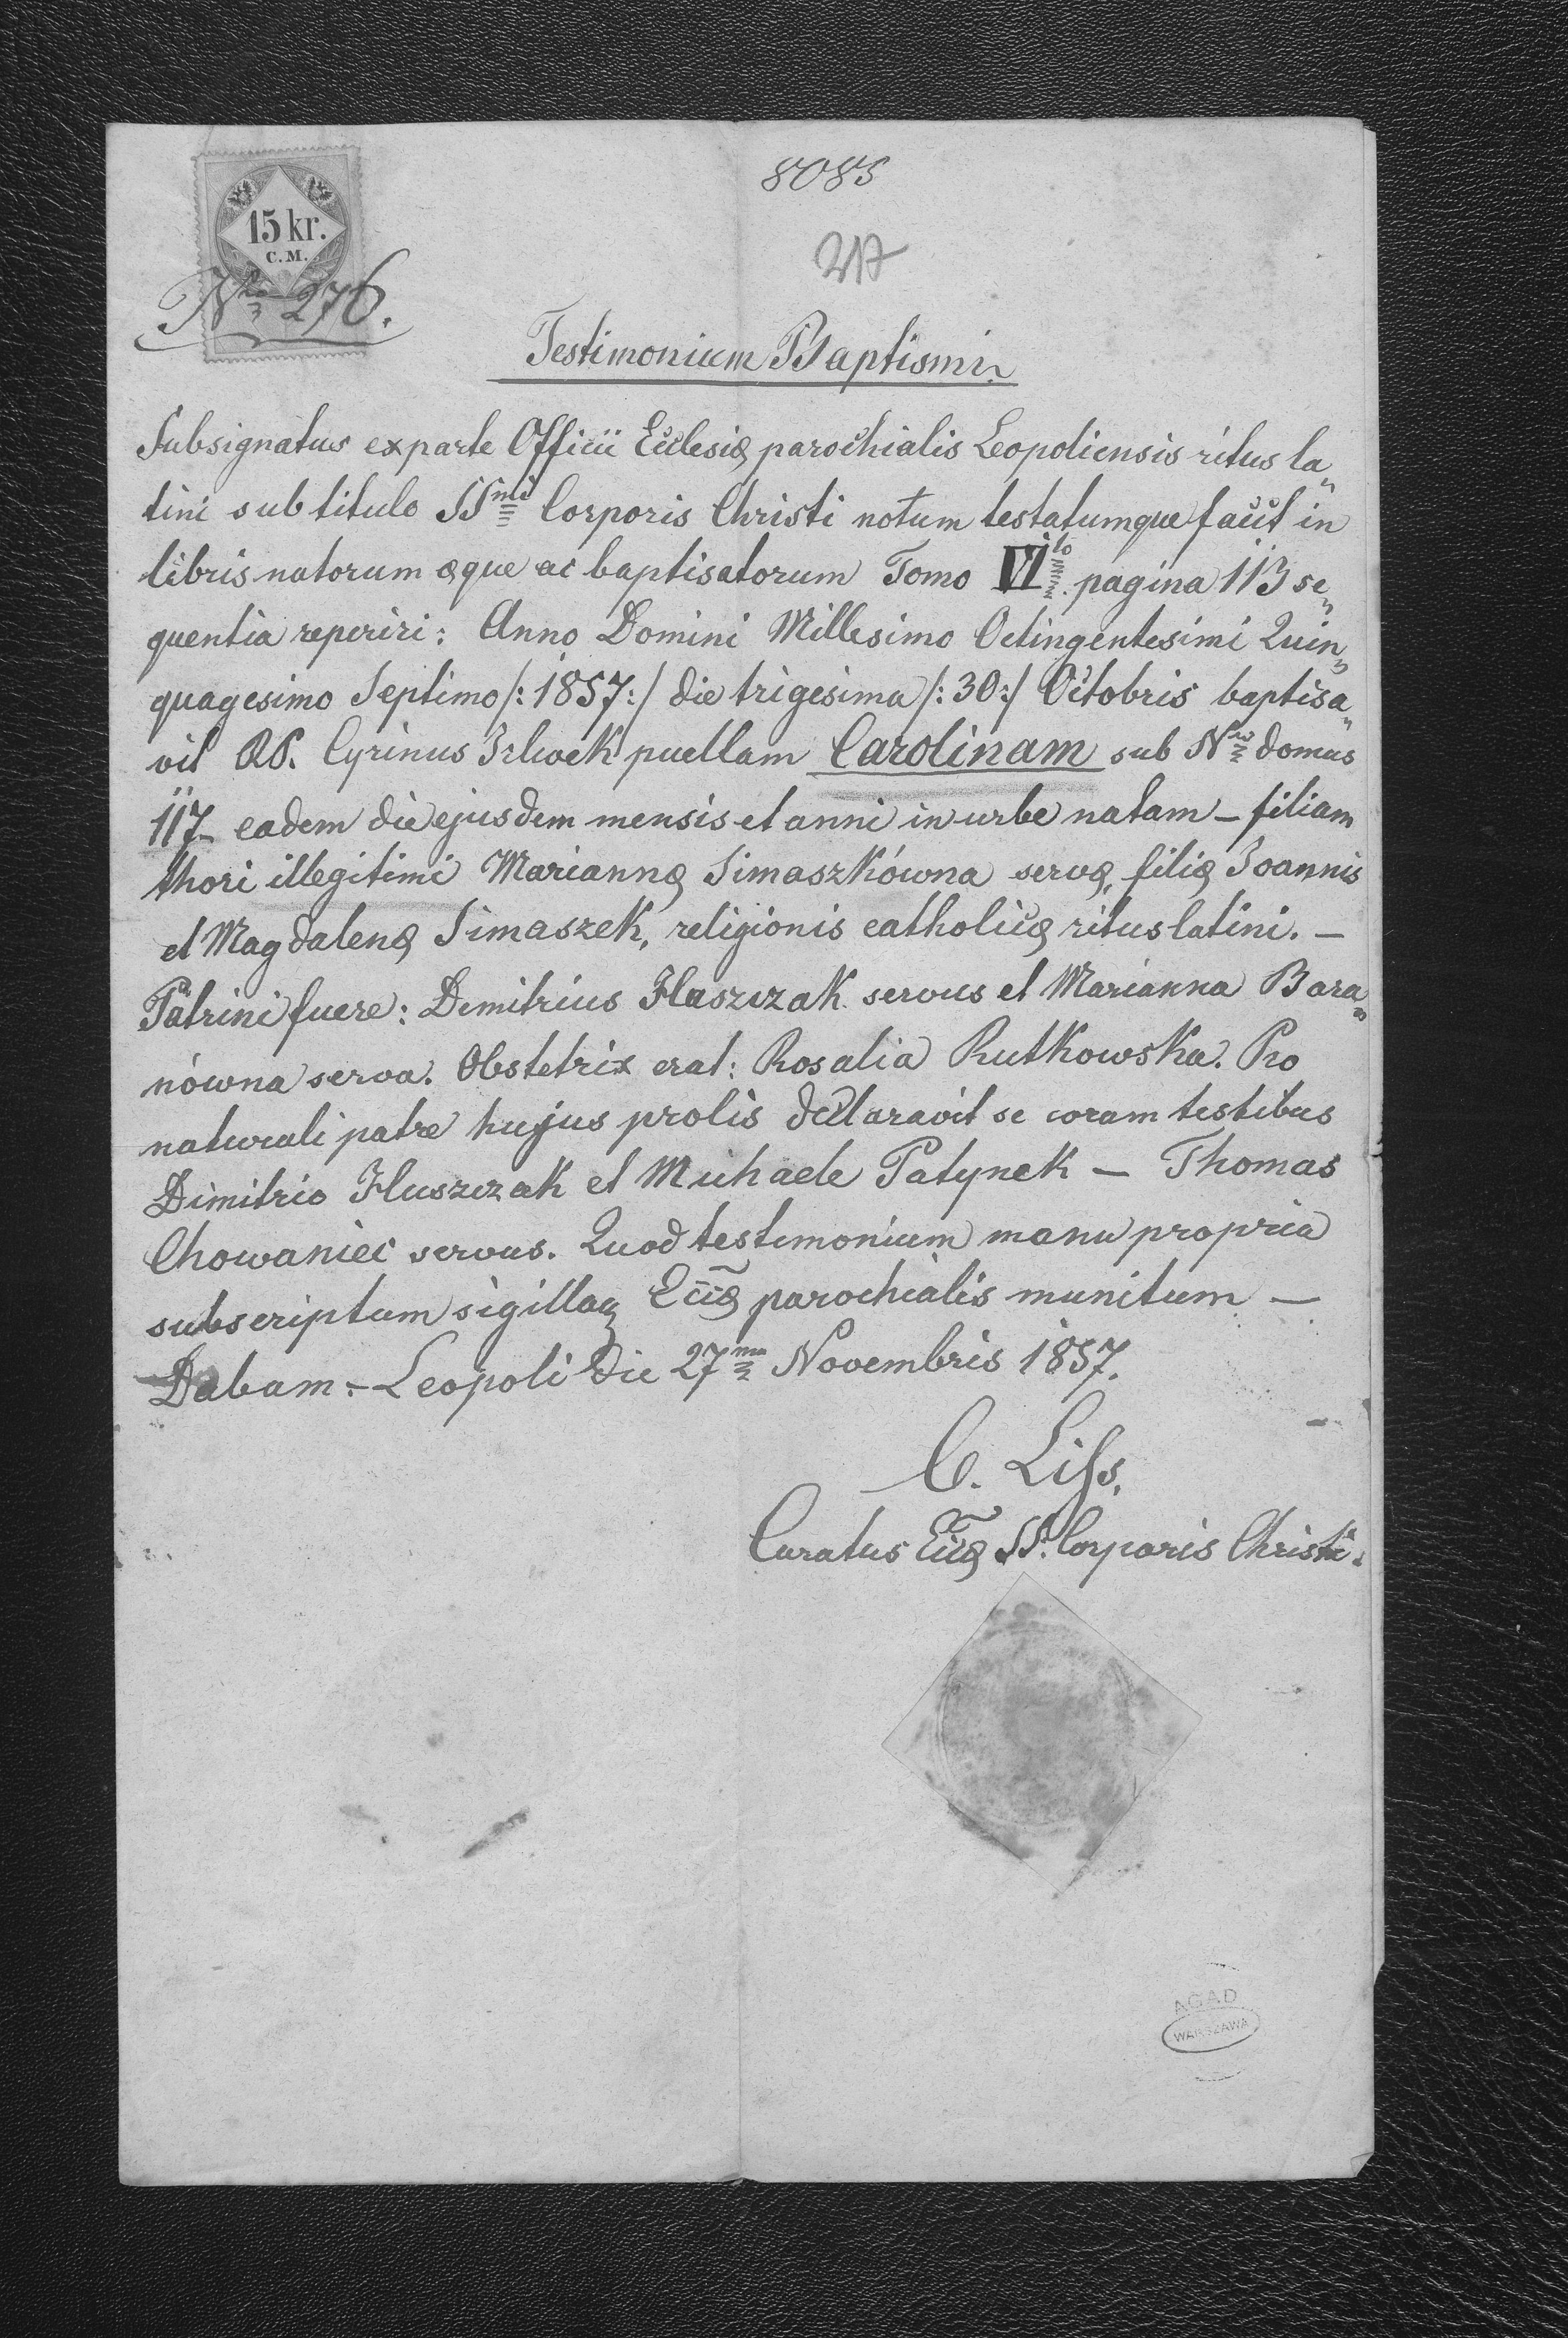 8085
217
15 kr.
C.M.
Nro 276.
Testimonium Baptismi.
Subsignatus ex parte Officii Ecclesiæ parochialis Leopoliensis ritus la„
tini sub titulo SSmi Corporis Christi notum testatumque facit in
libris natorum æque ac baptisatorum Tomo VIto pagina 113 se„
quentia reperiri: Anno Domini Millesimo Octingentesimi Quin„
quagesimo Septimo /: 1857 :/ die trigesima /: 30 :/ Octobris baptisa„
vit Cyrinus puellam Carolinam sub Nro domus
117 eadem die ejusdem mensis et anni in urbe natam – filiam
thori illegitimi Mariannæ Simaszkówna servæ, filiæ Joannis
et Magdalenæ Simaszek, religionis catholicæ ritus latini. –
Patrini fuere: Demitrius Huszczak servus et Marianna Bara„
nówna serva. Obstetrix erat: Rosalia Rutkowska. Pro
naturali patre hujus prolis declaravit se coram testibus
Dimitrio Huszczak et Michaele Patynek – Thomas
Chowaniec servus. Quod testimonium manu propria
subscriptum sigilloq Eccæ parochialis munitum –
Dabam. – Leopoli die 27ma Novembris 1857.
C. Liss,
Curatus Eccæ SS. Corporis Christi.
AGAD
WARSZAWA